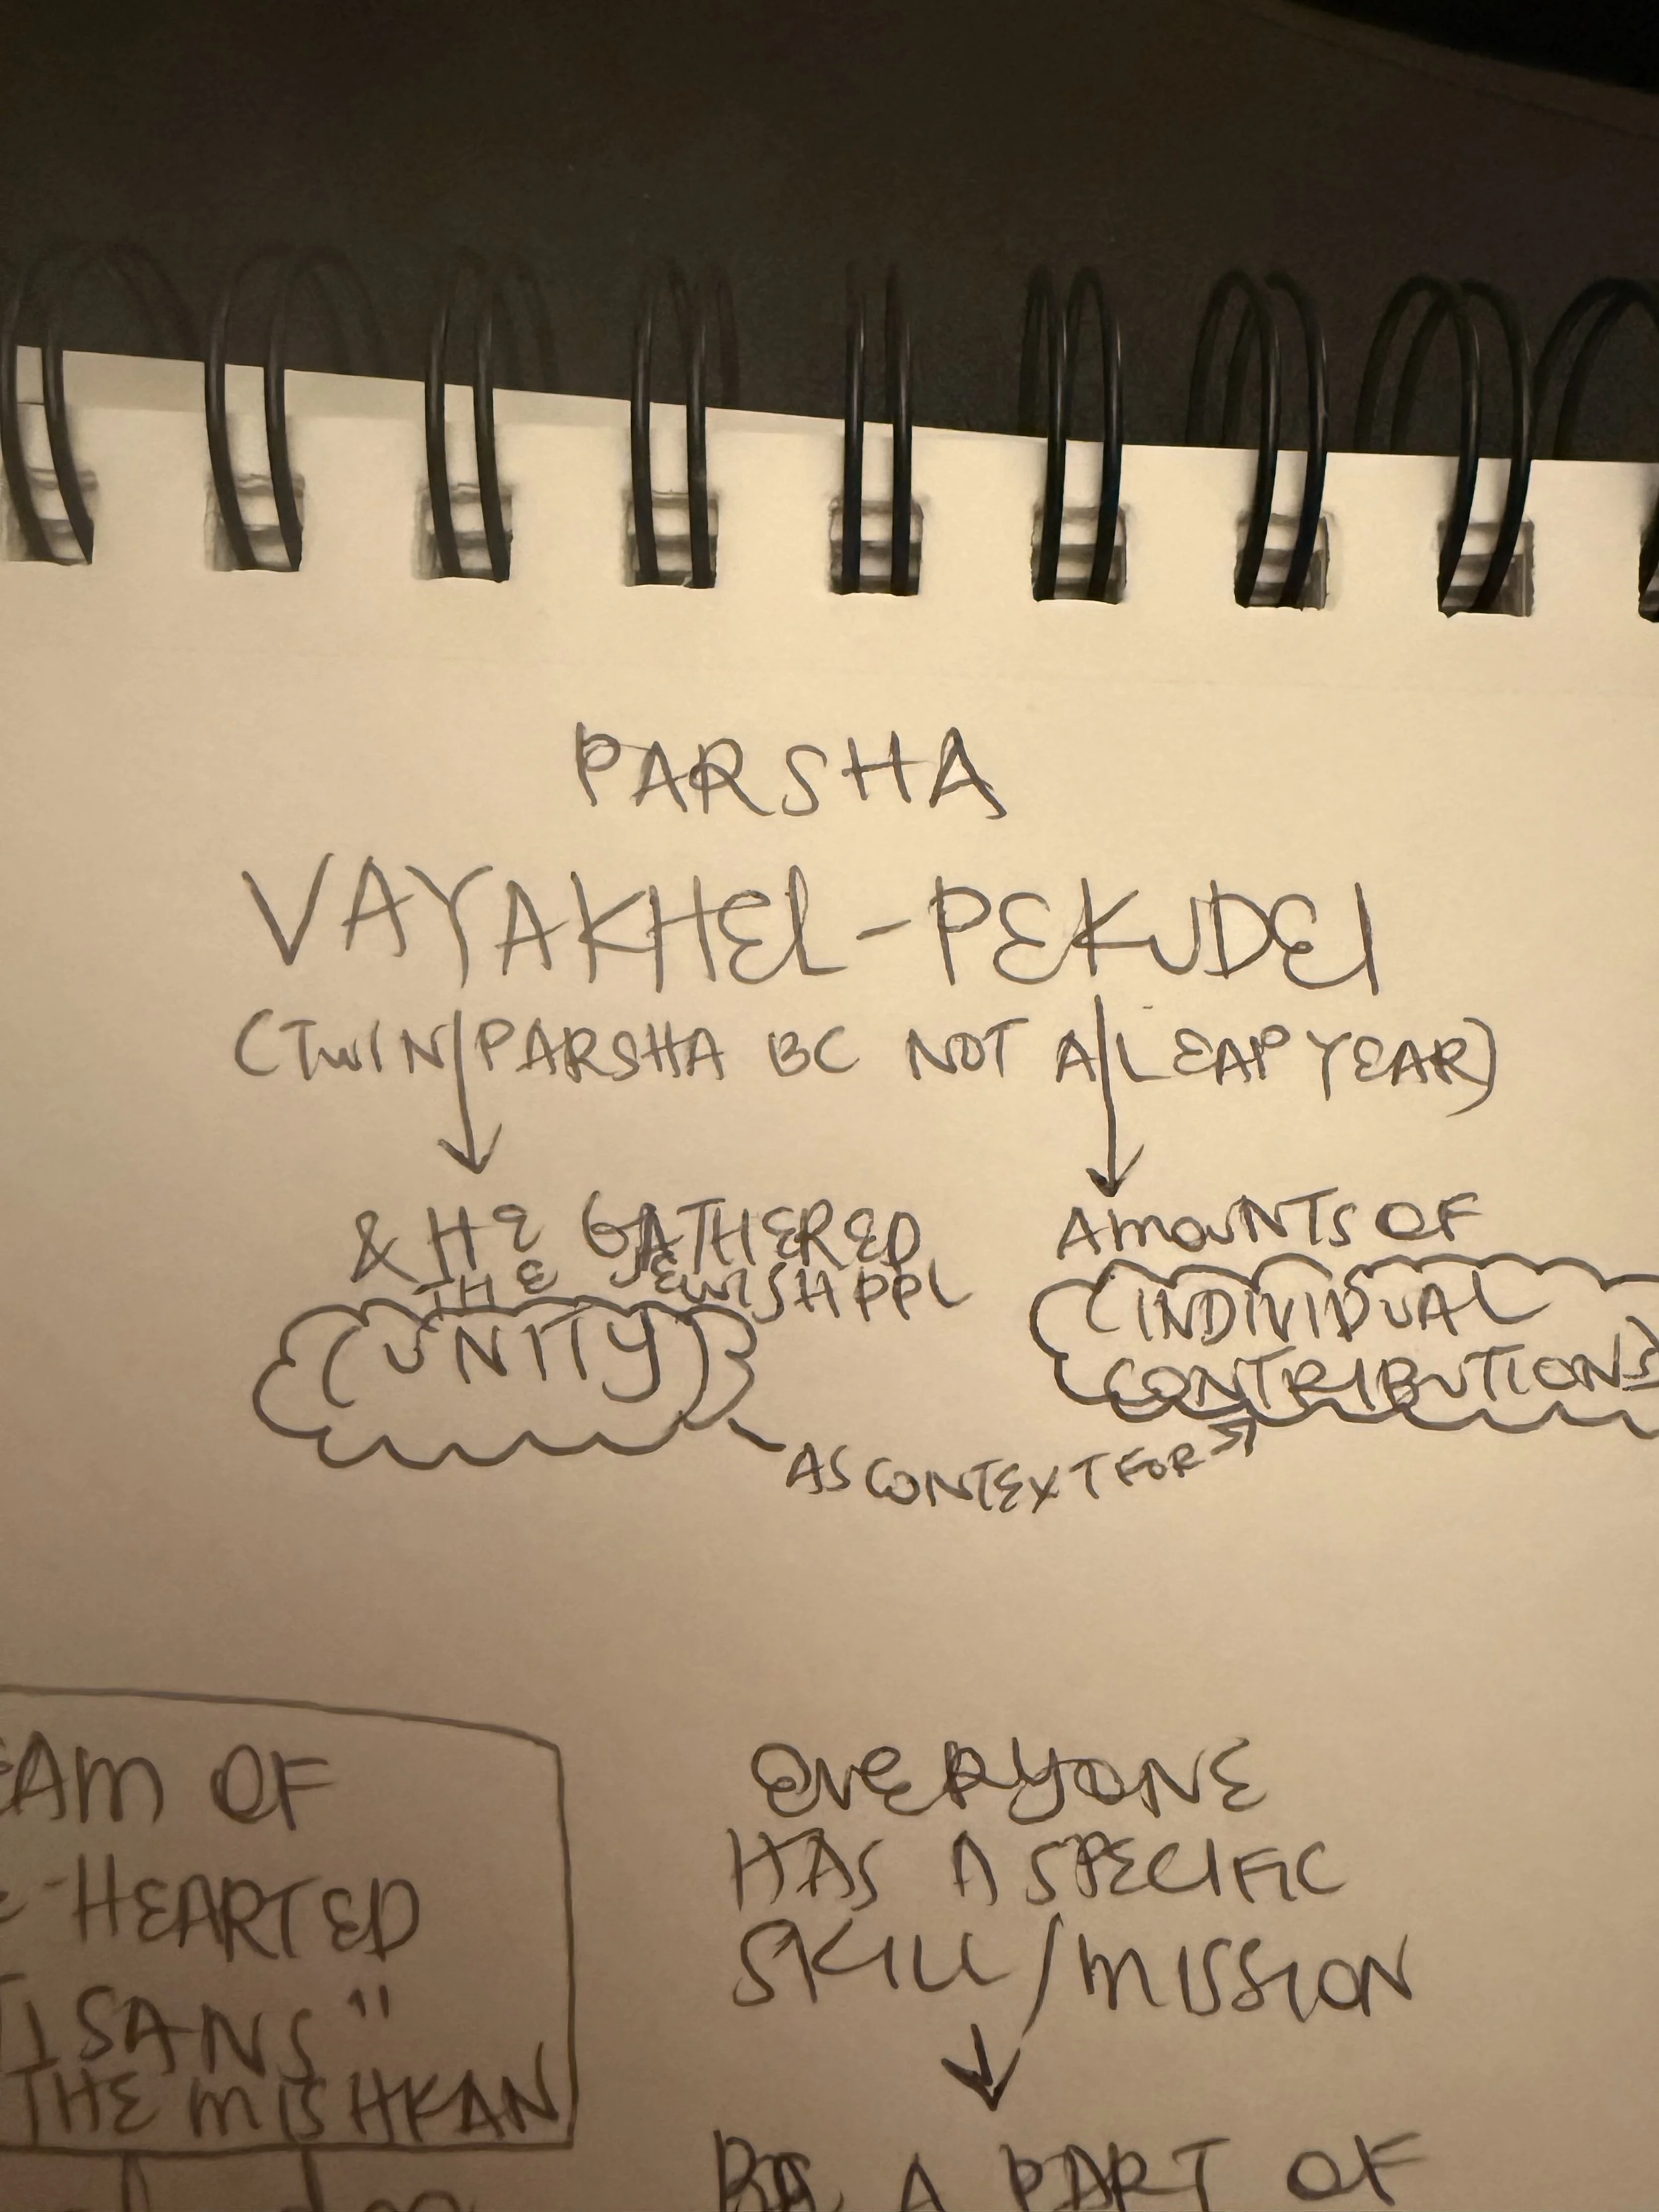 PARSHA
VAYAKHEL-PEKUDEI
(TWIN PARSHA BC NOT A LEAP YEAR)
& HE GATHERED
THE JEWISH PPL
(UNITY)
AMOUNTS OF
(INDIVIDUAL
CONTRIBUTIONS)
AS CONTEXT FOR
EAM OF
E-HEARTED
TISANS"
THE MISHKAN
EVERYONE
HAS A SPECIFIC
SKILL/MISSION
BE A PART OF